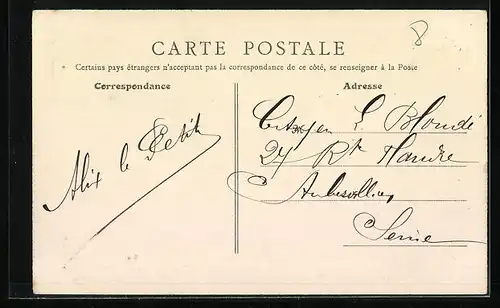 8
CARTE POSTALE
Certains pays étrangers n'acceptant pas la correspondance de ce côté, se renseigner à la Poste
Correspondance
Alix le Petit
Adresse
Citoyen L. Blondé
27 Rte Flandre
Aubervilliers
Seine